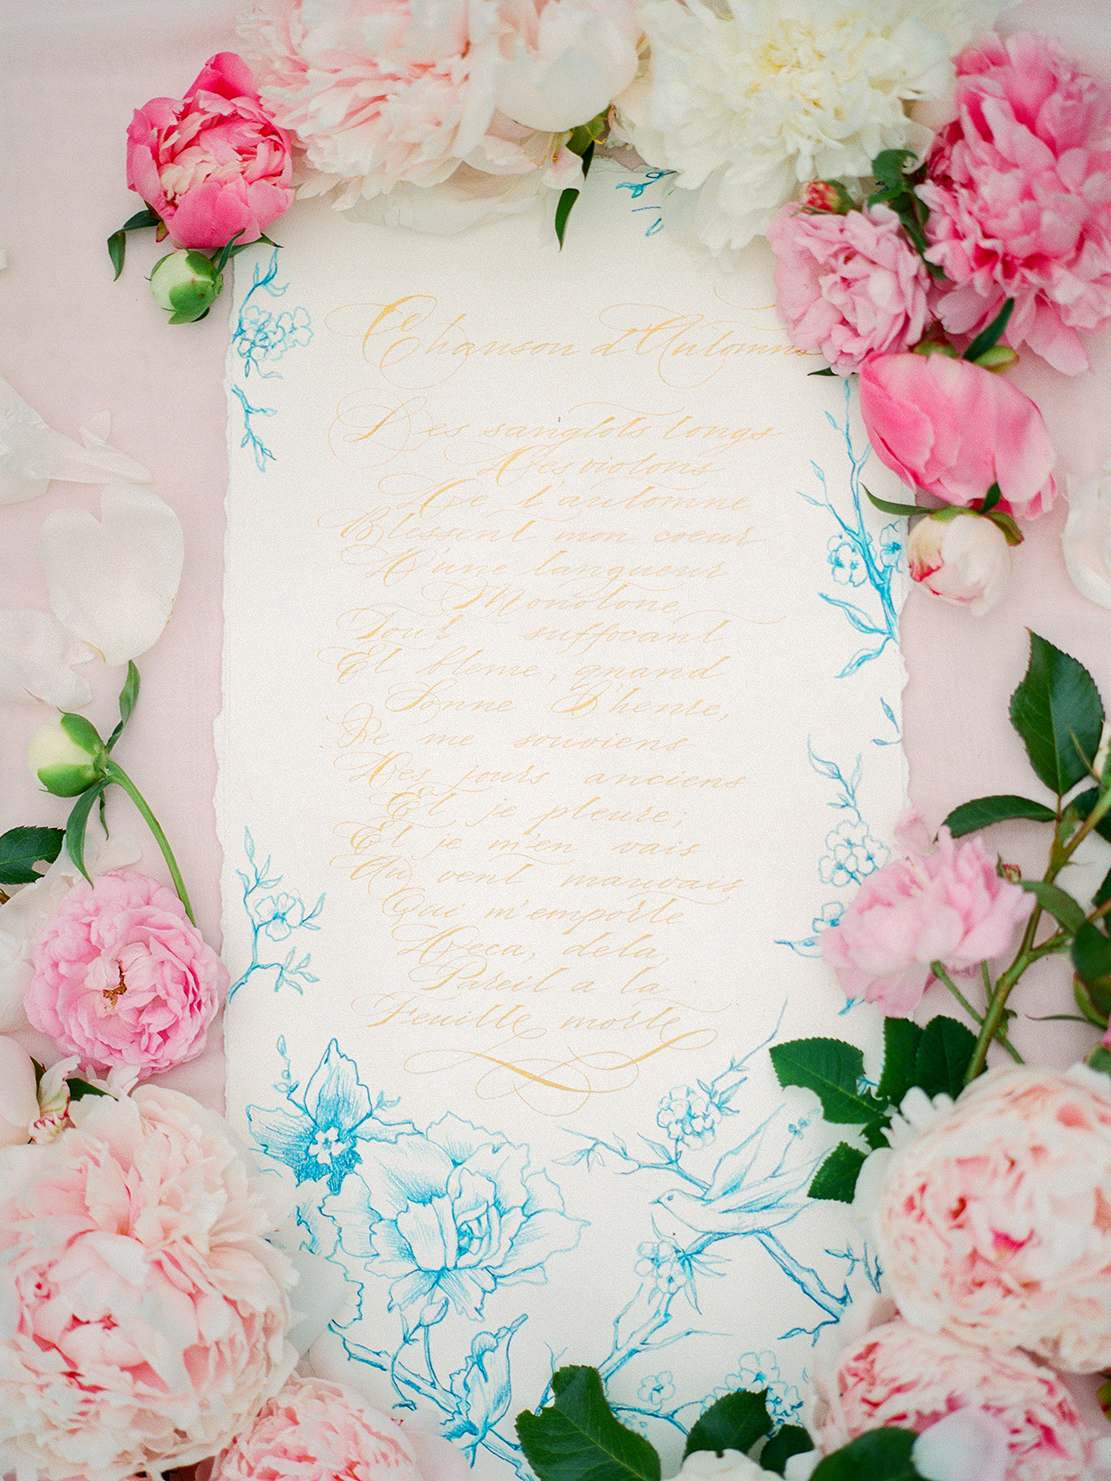 Chanson d'Automne
Les sanglots longs
Des violons
De l'automne
Blessent mon coeur
D'une langueur
Monotone
Tout suffocant
Et bleme, quand
Sonne l'heure,
Je me souviens
Des jours anciens
Et je pleure;
Et je m'en vais
Au vent mauvais
Qui m'emporte
Deca, dela,
Pareil a la
Feuille morte